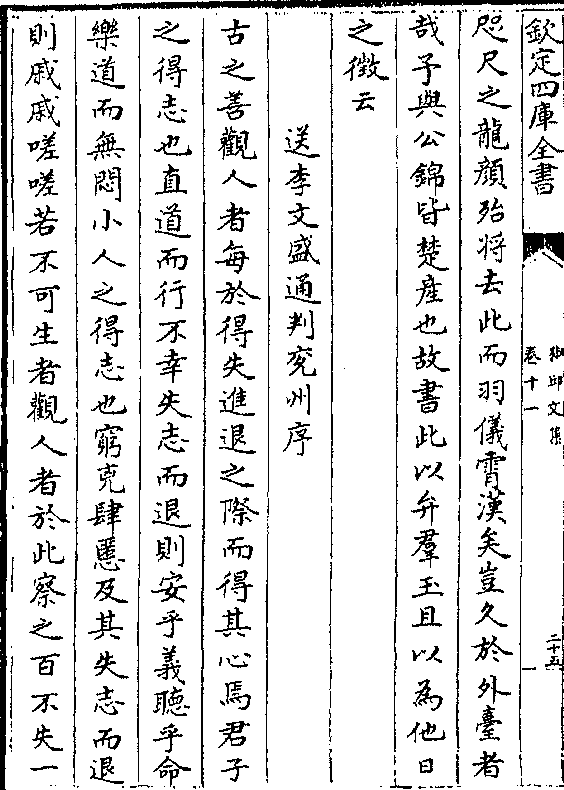 欽定四庫全書
卷十一
文集
二十五
咫尺之龍顔殆将去此而羽儀霄漢矣豈久於外臺者
哉予與公錦皆楚産也故書此以弁羣玉且以為他日
之徴云
送李文盛通判兖州序
古之善觀人者每於得失進退之際而得其心焉君子
之得志也直道而行不幸失志而退則安乎義聽乎命
樂道而無悶小人之得志也窮兇肆慝及其失志而退
則戚戚嗟嗟若不可生者觀人者於此察之百不失一